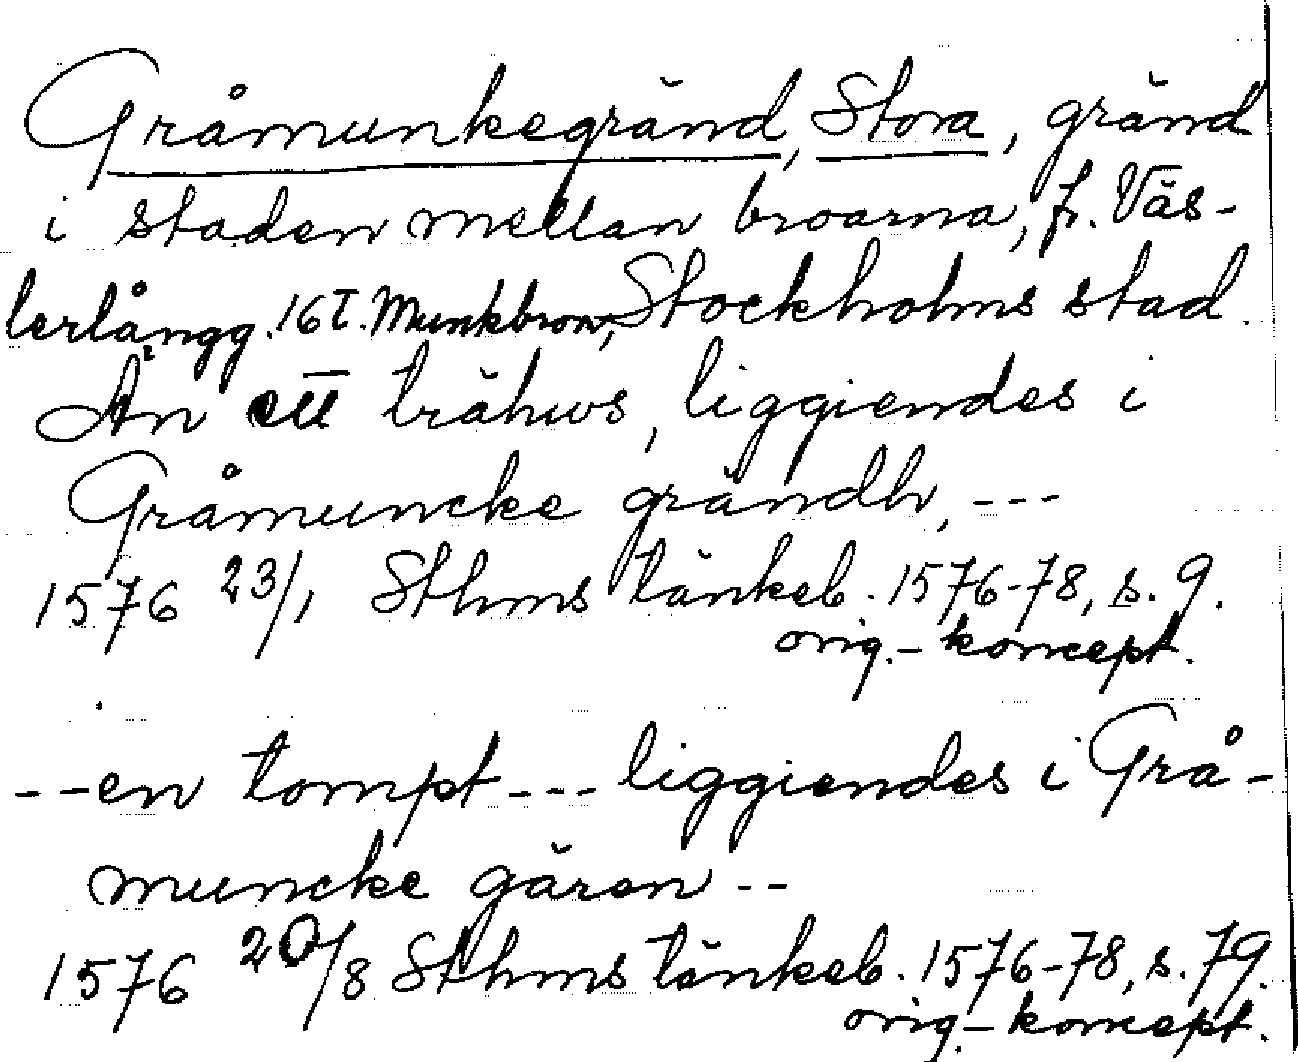 Gråmunkegränd, Stora, gränd
i staden mellan broarna, fr. Väs-
terlångg. 16 t. Munkbron, Stockholms stad.
Än ett trähws, liggiendes i
Gråmuncke grändh, ---
1576 23/1 Sthms tänkeb. 1576-78, s. 9.
orig.-koncept.
--en tompt --- liggiendes i Grå-
muncke gären --
1576 20/8 Sthms tänkeb. 1576-78, s. 79.
orig.-koncept.